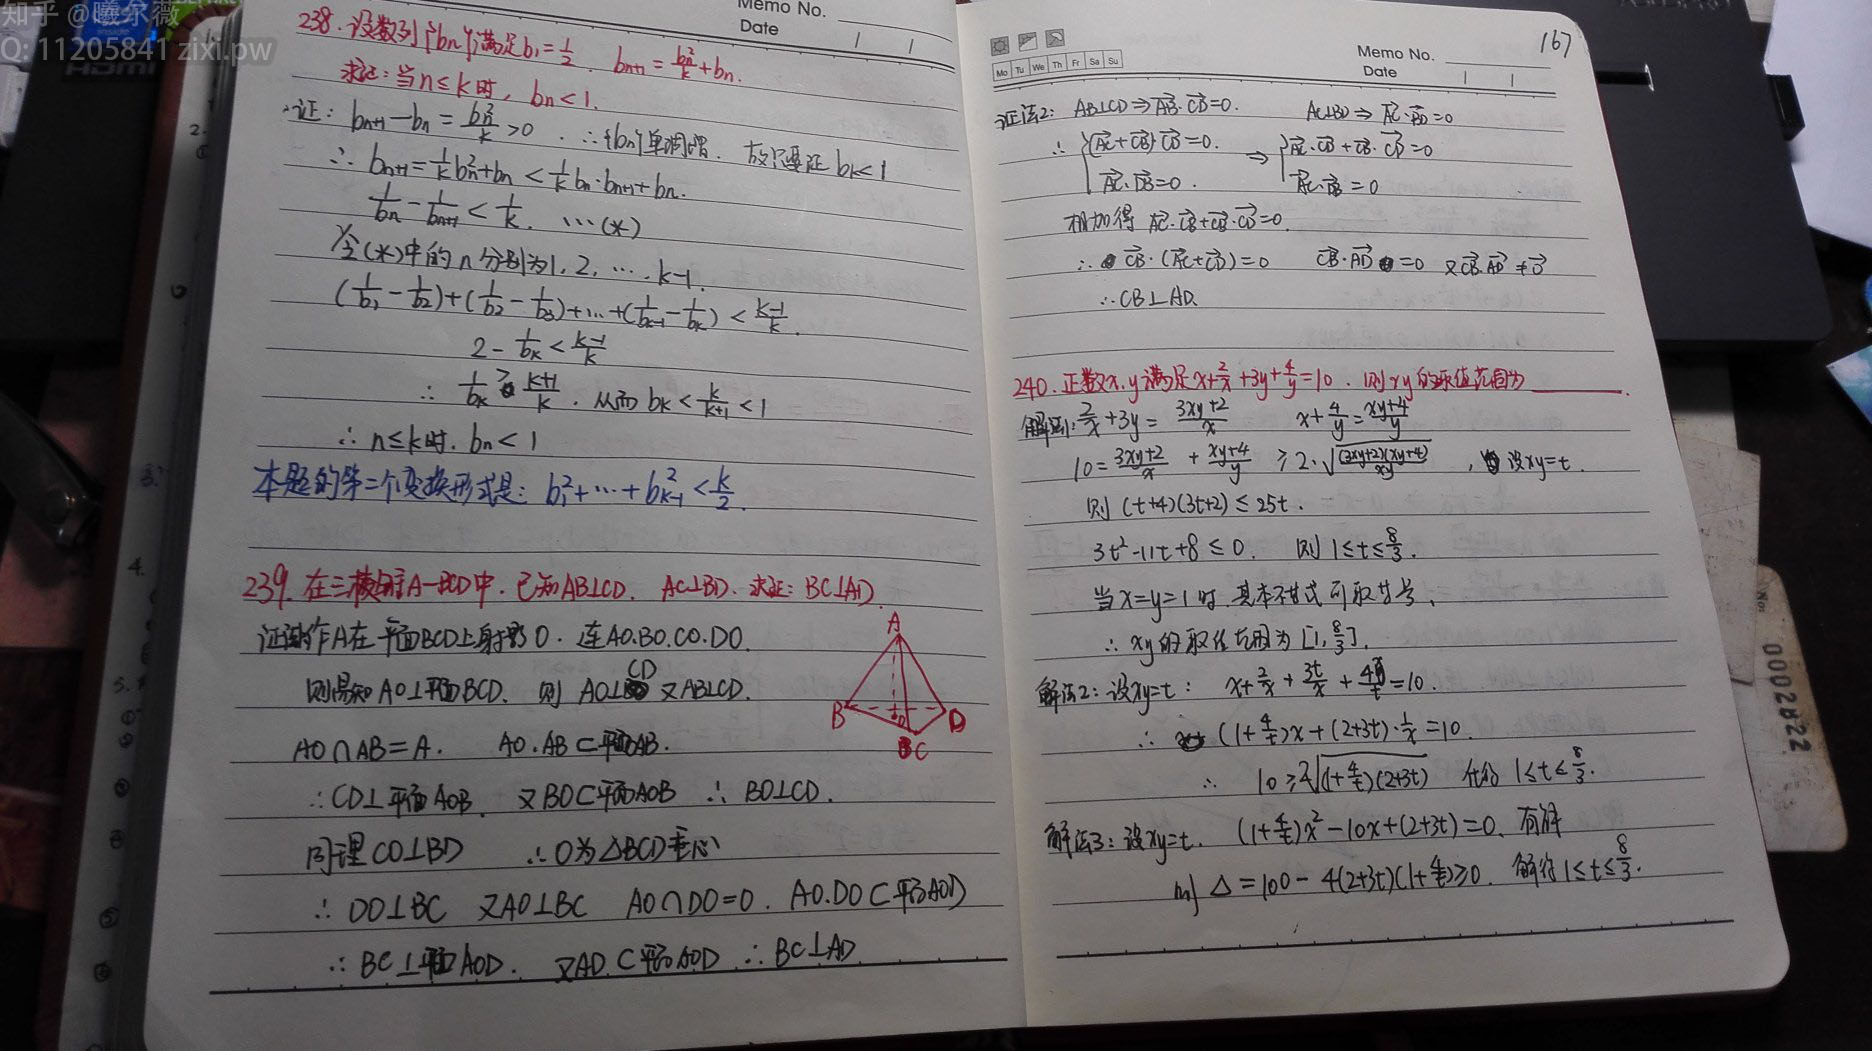 知乎 @曦尔薇
Q: 11205841 zixi.pw
Memo No.
Date
238. 设数列{bn}满足b₁=1/2. bn+1 = bn²/k + bn.
求证: 当n≤k时, bn<1.
证: bn+1-bn = bn²/k >0 . ∴{bn}单调增. 故只要证bk<1
∴ bn+1=1/k bn²+bn < 1/k bn·bn+1+bn.
1/bn - 1/bn+1 < 1/k. …(*)
令(*)中的n分别为1, 2, …, k-1.
(1/b₁ - 1/b₂)+(1/b₂ - 1/b₃)+…+(1/bk-1 - 1/bk) < k-1/k.
2 - 1/bk < k-1/k
∴ 1/bk > k+1/k . 从而 bk < k/k+1 < 1
∴ n≤k时. bn<1
本题的第二个变换形式是: b₁²+…+bk-1² < k/2.
239. 在三棱锥A-BCD中. 已知AB⊥CD. AC⊥BD. 求证: BC⊥AD.
作A在平面BCD上射影O. 连AO.BO.CO.DO.
则易知AO⊥平面BCD. 则 AO⊥CD 又AB⊥CD.
AO∩AB=A. AO.AB⊂平面AOB.
∴CD⊥平面AOB. 又BO⊂平面AOB ∴ BO⊥CD.
同理CO⊥BD ∴O为△BCD垂心
∴ DO⊥BC 又AO⊥BC AO∩DO=O. AO.DO⊂平面AOD
∴ BC⊥平面AOD. 又AD⊂平面AOD ∴ BC⊥AD
A
B
O
D
C
Mo Tu We Th Fr Sa Su
Memo No. 167
Date
证法2: AB⊥CD⇒AB·CD=0. AC⊥BD⇒AC·BD=0
∴ {(AC+CB)·CD=0. ⇒ {AC·CD+CB·CD=0
AC·DB=0. AC·DB=0
相加得 AC·CB+CB·CD=0.
∴ CB·(AC+CD)=0 CB·AD =0 又CB.AD≠0
∴CB⊥AD.
240. 正数x.y满足x+2/x+3y+4/y=10. 则xy的取值范围为
解法1: 2/x+3y = 3xy+2/x x+4/y=xy+4/y
10=3xy+2/x + xy+4/y ≥2·√(3xy+2)(xy+4)/xy , 设xy=t.
则(t+4)(3t+2)≤25t.
3t²-11t+8≤0. 则 1≤t≤8/3.
当x=y=1时. 基本不等式可取等号.
∴ xy的取值范围为[1, 8/3].
解法2: 设xy=t: x+2/x+3t/x+4x/t=10.
∴ (1+4/t)x+(2+3t)·1/x=10.
∴ 10≥2√(1+4/t)(2+3t) 解得 1≤t≤8/3.
解法3: 设xy=t. (1+4/t)x²-10x+(2+3t)=0. 有解
则 △=100-4(2+3t)(1+4/t)≥0. 解得1≤t≤8/3.
0002822